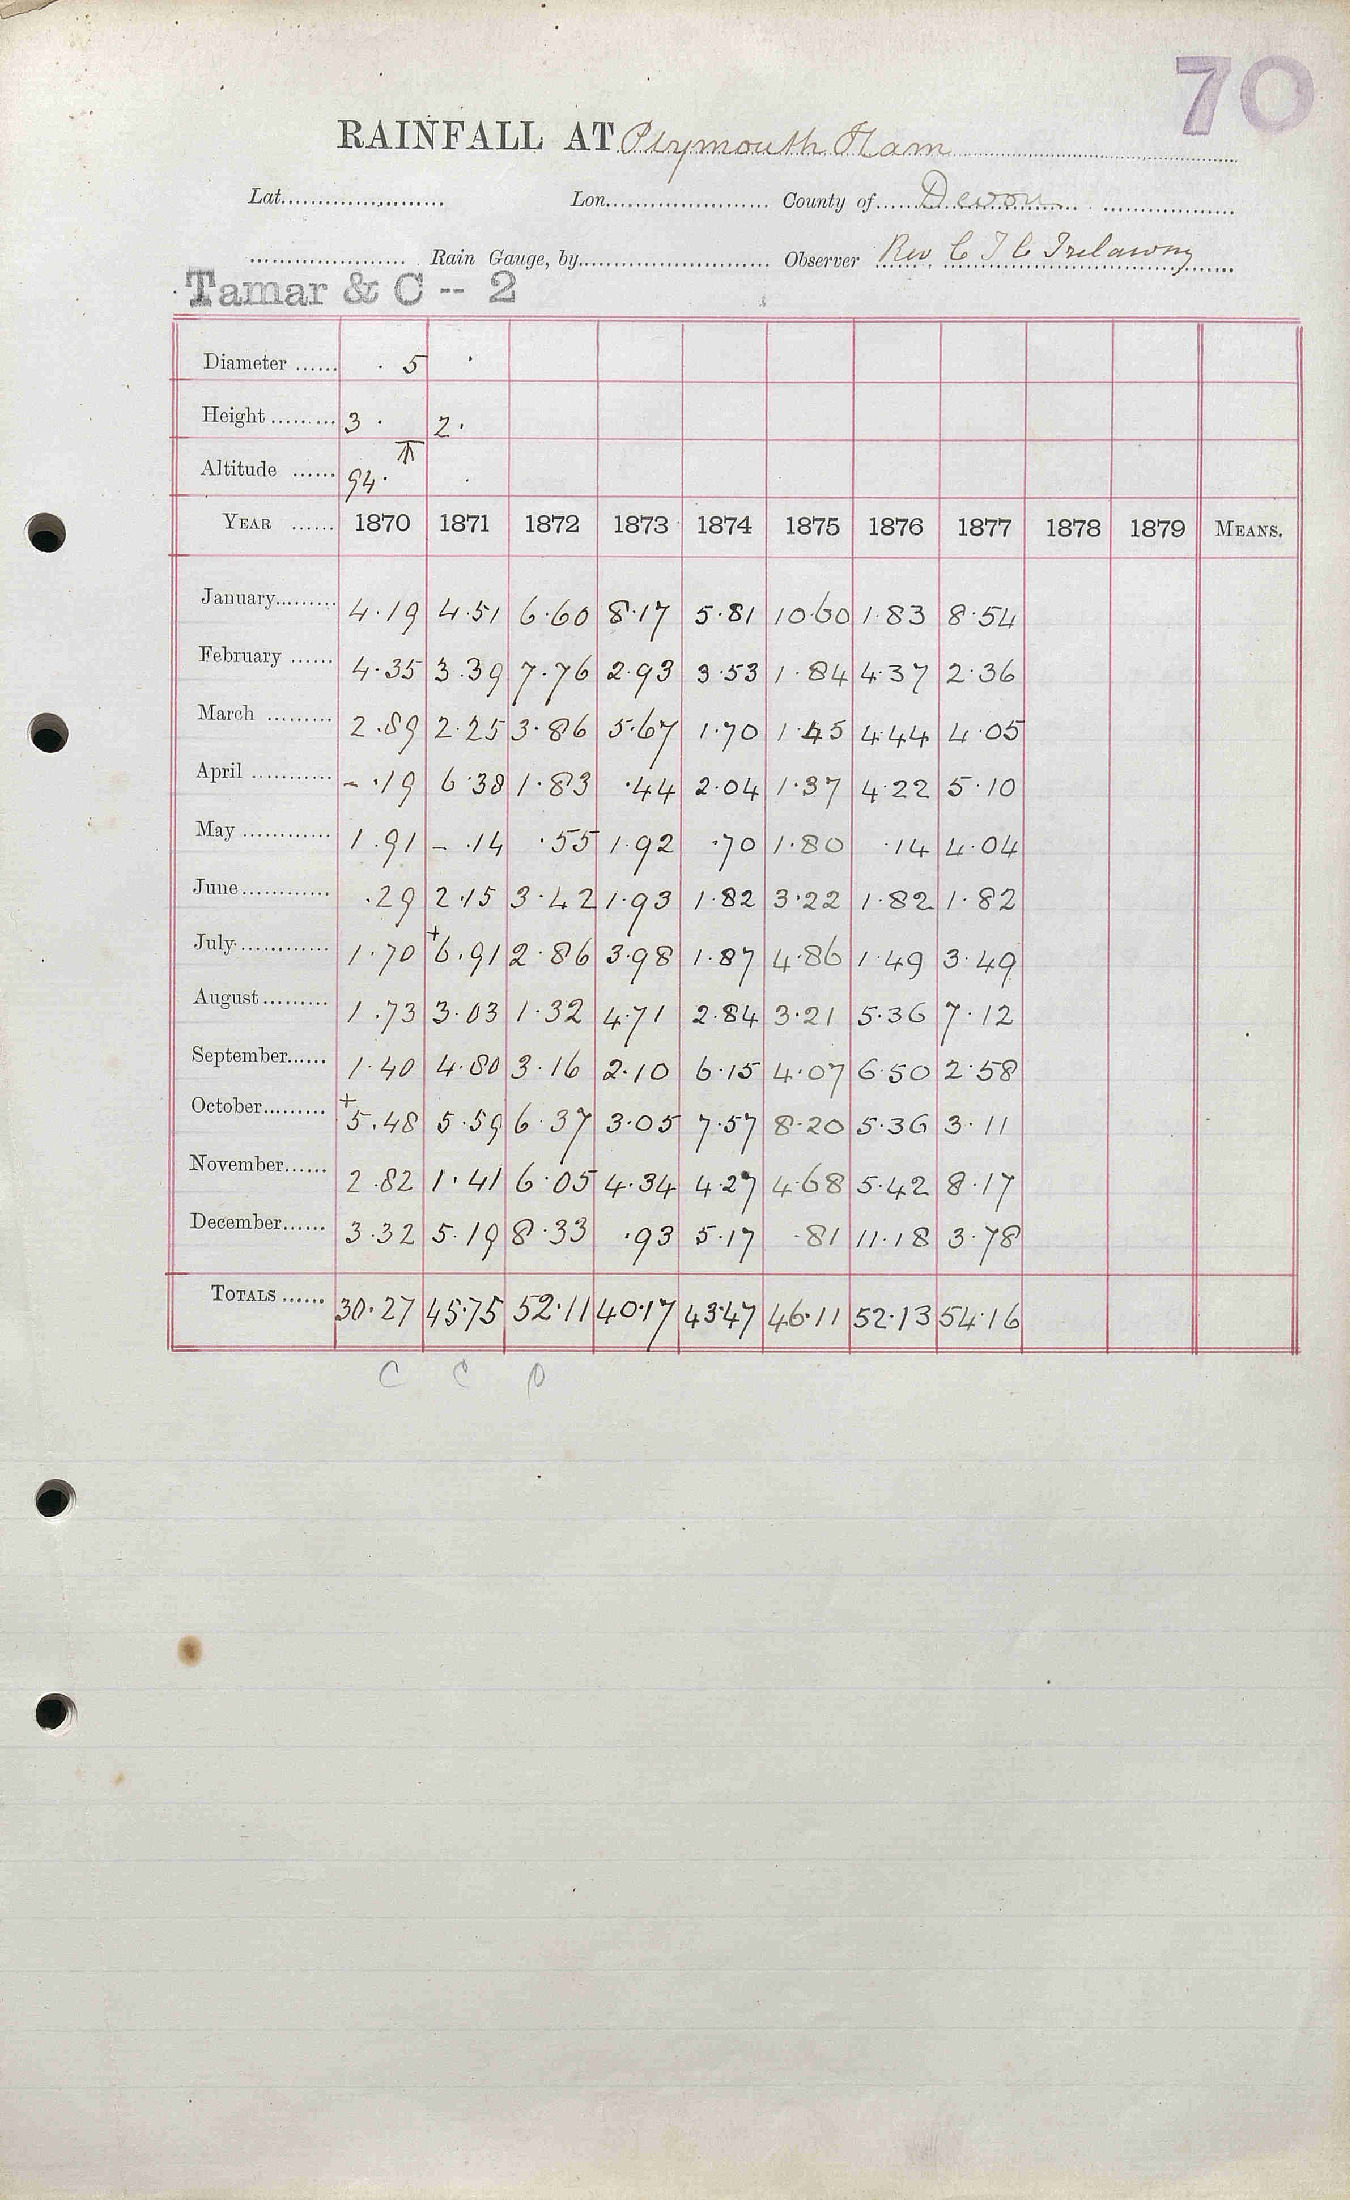 70
RAINFALL AT Plymouth Ham
Lat. Lon. County of Devon
Rain Gauge, by Observer Rev C T C Trelawny
Tamar & C -- 2
Diameter 5
Height 3. 2.
Altitude 94.
YEAR 1870 1871 1872 1873 1874 1875 1876 1877 1878 1879 MEANS.
January 4.19 4.51 6.60 8.17 5.81 10.60 1.83 8.54
February 4.35 3.39 7.76 2.93 3.53 1.84 4.37 2.36
March 2.89 2.25 3.86 5.67 1.70 1.45 4.44 4.05
April - .19 6.38 1.83 .44 2.04 1.37 4.22 5.10
May 1.91 - .14 .55 1.92 .70 1.80 .14 4.04
June .29 2.15 3.42 1.93 1.82 3.22 1.82 1.82
July 1.70 +6.91 2.86 3.98 1.87 4.86 1.49 3.49
August 1.73 3.03 1.32 4.71 2.84 3.21 5.36 7.12
September 1.40 4.80 3.16 2.10 6.15 4.07 6.50 2.58
October +5.48 5.59 6.37 3.05 7.57 8.20 5.36 3.11
November 2.82 1.41 6.05 4.34 4.27 4.68 5.42 8.17
December 3.32 5.19 8.33 .93 5.17 .81 11.18 3.78
TOTALS 30.27 45.75 52.11 40.17 43.47 46.11 52.13 54.16
C C